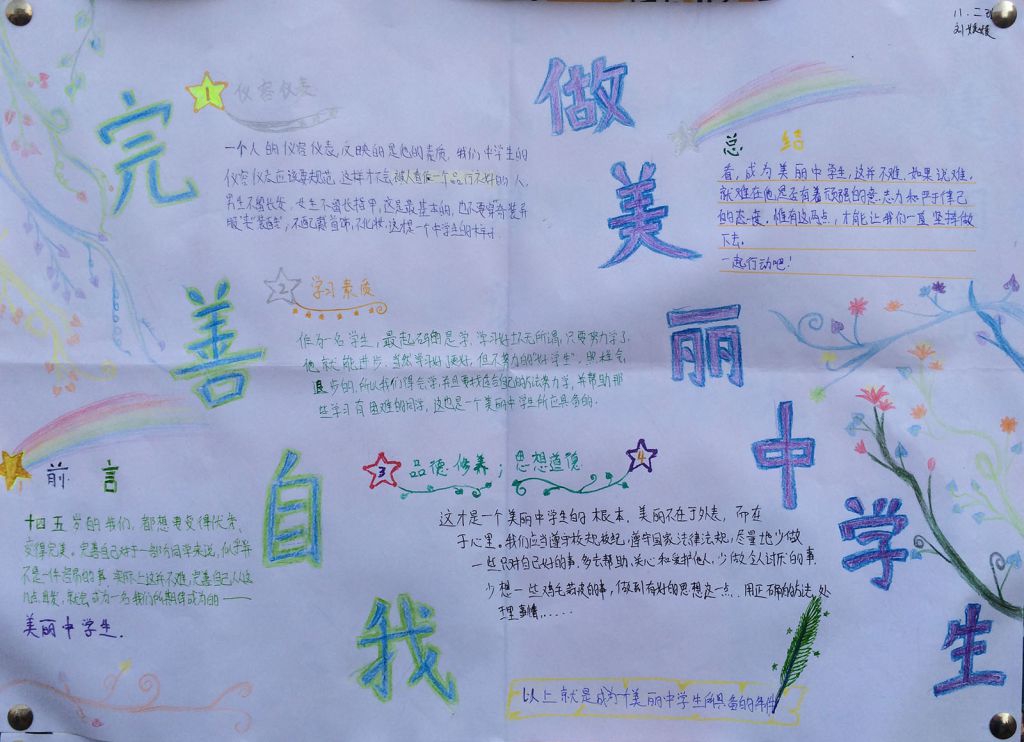 11.二
刘媛媛
完善自我
做美丽中学生
前言
十四五岁的我们,都想要变得优秀,
变得完美。完善自己对于一部分同学来说,似乎并
不是一件容易的事,实际上这并不难,完善自己从这
几点出发,就会成为一名我们所期待成为的——
美丽中学生.
1 仪容仪表
一个人的仪容仪表,反映的是他的素质,我们中学生的
仪容仪表应该要规范,这样才不会被人当做一个品行不好的人,
男生不留长发,女生不留长指甲,这是最基本的,也不要穿奇装异
服“卖”装酷,不配戴首饰,不化妆,这才是一个中学生的样子.
2 学习素质
作为一名学生,最起码的是学,学习好坏无所谓,只要努力学了
他就能进步,当然学习好了更好,但不努力的“好学生”,照样会
退步的,所以我们得会学,并且要找适合自己的方法努力学,并帮助那
些学习有困难的同学,这也是一个美丽中学生所应具备的.
3 品德修养;思想道德 4
这才是一个美丽中学生的根本,美丽不在于外表,而在
于心里。我们应当遵守校规校纪,遵守国家法律法规,尽量地少做
一些只对自己好的事,多去帮助、关心和爱护他人,少做令人讨厌的事.
少想一些鸡毛蒜皮的事,做到有好的思想这一点.用正确的方法处
理事情......
以上就是成为个美丽中学生所具备的条件
总结
看,成为美丽中学生,这并不难.如果说难,
就难在他是否有着顽强的意志力和严于律己
的态度。惟有这两点,才能让我们一直坚持做
下去.
一起行动吧!